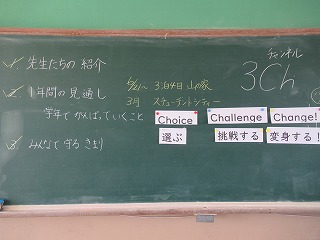 1. 先生たちの紹介
2. 1年間の見通し
学年でがんばっていくこと
3. みんなで守るきまり
5/21〜 3泊4日 山の家
3月 スチューデントシティー
チャンネル
3Ch
Choice Challenge Change!
選ぶ 挑戦する 変身する!